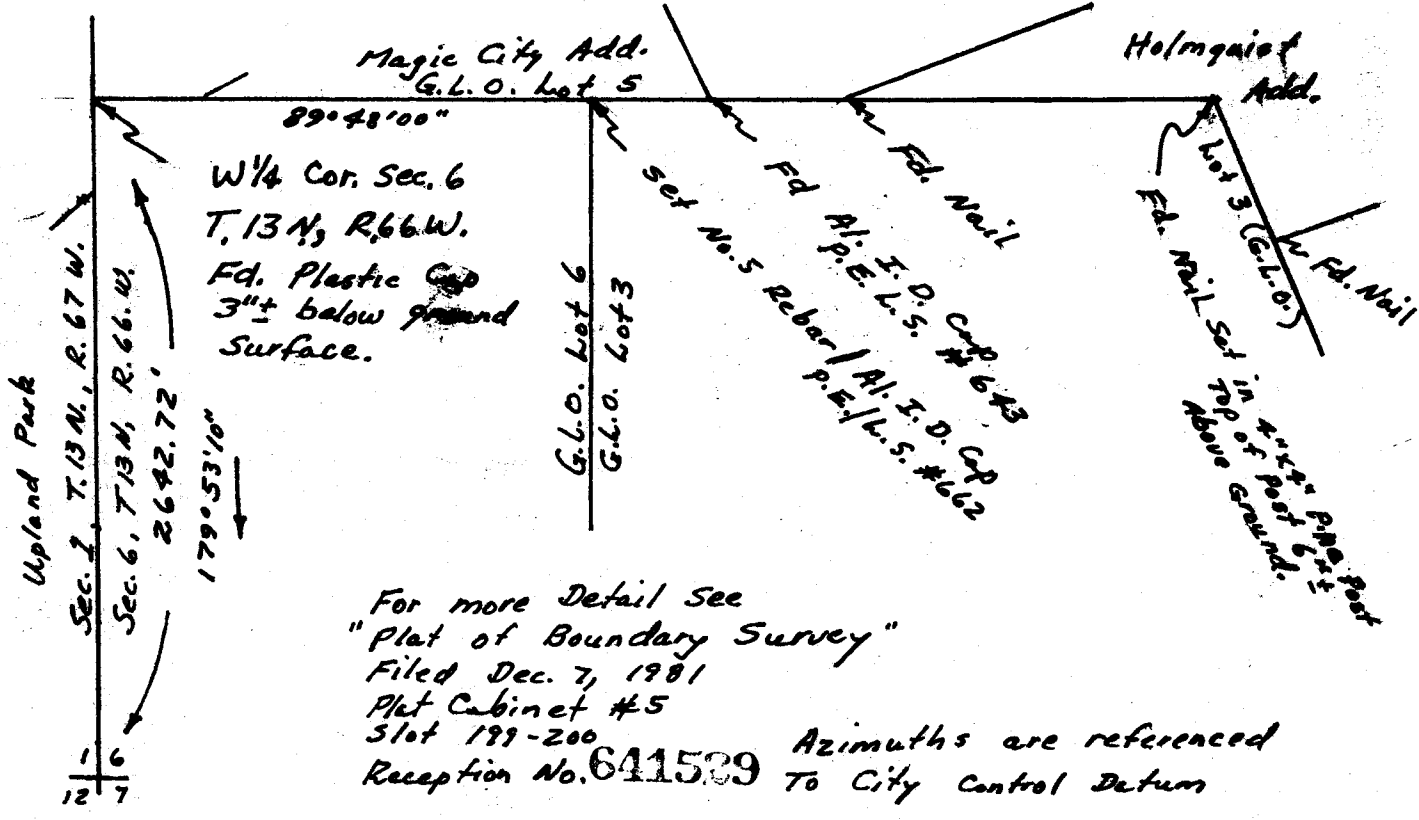 Magic City Add.
G.L.O. Lot 5
Holmquist
Add.
89°48'00"
W¼ Cor. Sec. 6
T. 13 N, R. 66 W.
Fd. Plastic Cap
3"± below ground
Surface.
Upland Park
Sec. 1, T. 13 N., R. 67 W.
Sec. 6, T 13 N, R. 66. W.
2642.72'
179°53'10"
G.L.O. Lot 6
G.L.O. Lot 3
Set No. 5 Rebar / Al. I. D. Cap
P.E./L.S. #662
Fd Al. I. D. Cap
P. E. L. S. #643
Fd. Nail
Fd. Nail Set in 4"x4" Post
Top of Post 6"±
Above Ground.
Lot 3 (G.L.O.)
Fd. Nail
For more Detail See
"Plat of Boundary Survey"
Filed Dec. 7, 1981
Plat Cabinet #5
Slot 199-200
Reception No.
Azimuths are referenced
To City Control Datum
1 6
12 7